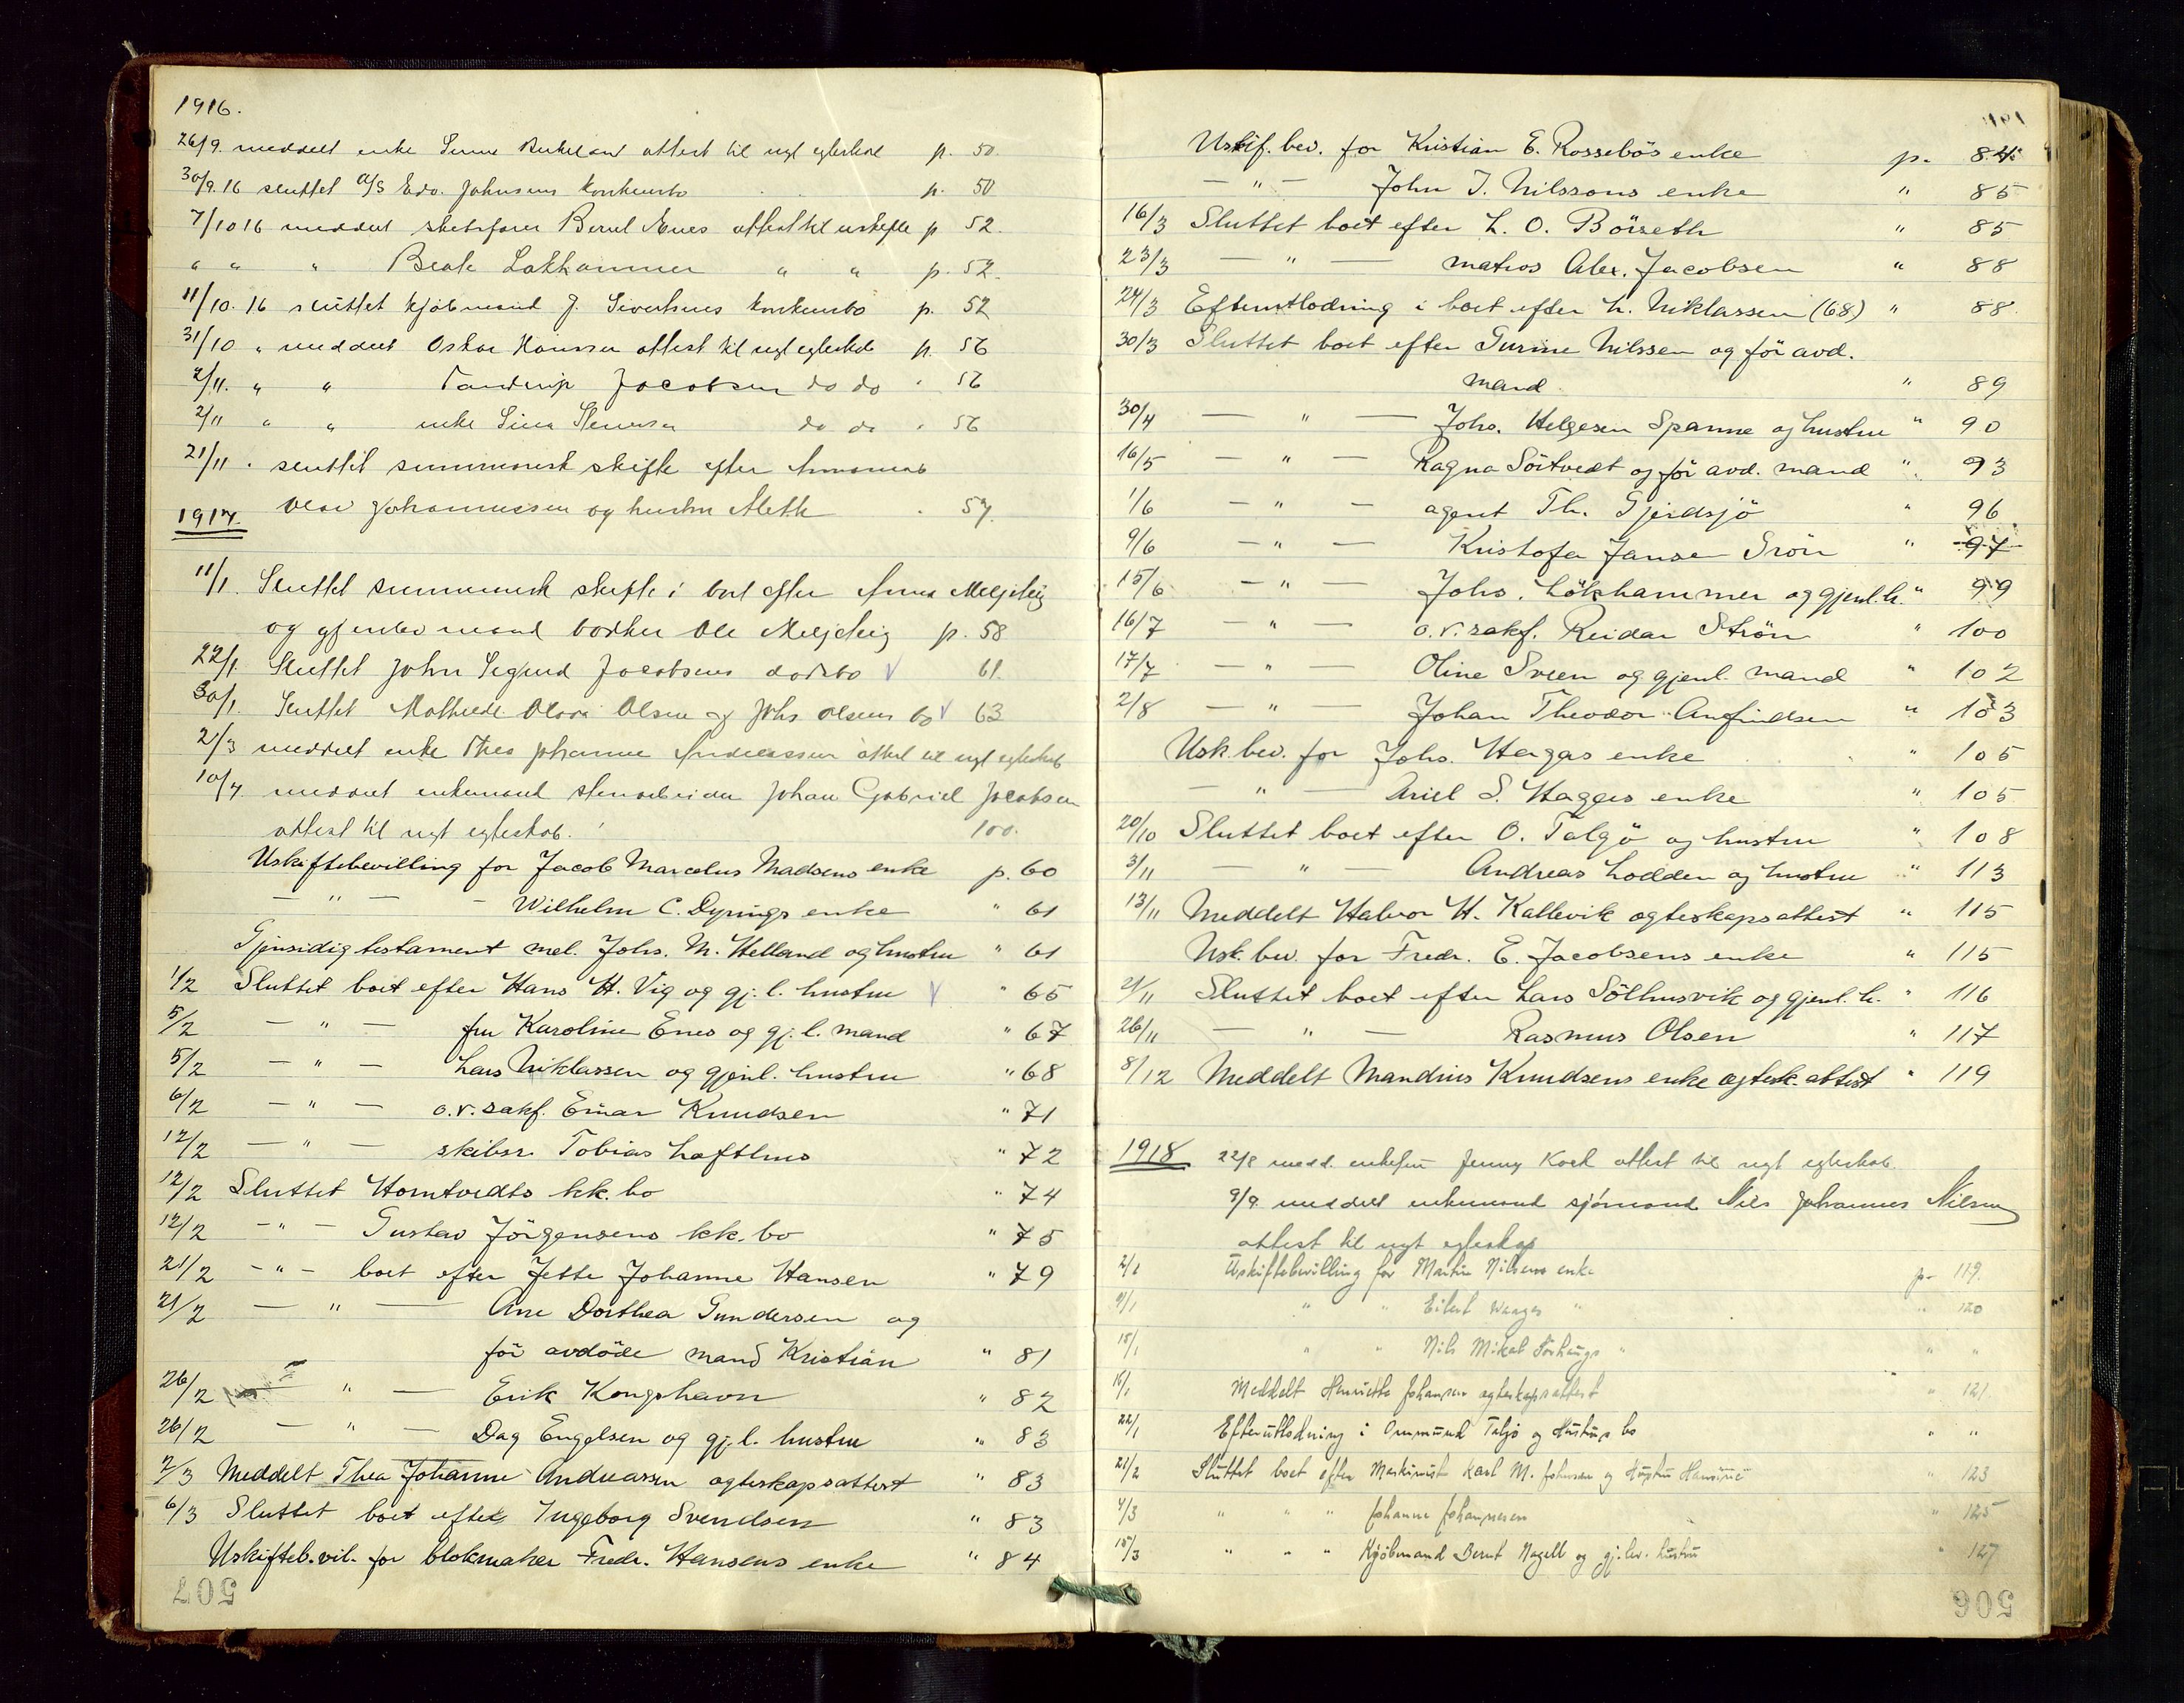 1916.
26/9. meddelt enke attest til nyt egteskab p. 50.
30/9.16 sluttet A/S Edv. Johnsens konkursbo p. 50
7/10 16 meddelt Bernt Enes attest til uskifte p 52.
" " " Beate Løkhammer " " p. 52.
11/10. 16 sluttet kjøbmand J. Sivertsens konkursbo p. 52
31/10 " meddelt Oskar Hanssen attest til nyt egteskab p. 56
2/11. " " Jacobsen do do " 56
2/11 " " enke Sina do do " 56
21/11 " sluttet summarisk skifte efter
Olai Johannessen og hustru Alethe " 57.
1917.
11/1. Sluttet summarisk skifte i boet efter Anna
og gjenlev mand bødker Ole p. 58
22/1. Sluttet John Sigurd Jacobsens dødsbo V 61.
30/1. Sluttet Mathilde Olava Olsen og Johs Olsens bo V 63
2/3 meddelt enke Thea Johanne Andreassen attest til nyt egteskab
10/7. meddelt enkemand stenarbeider Johan Gabriel Jacobsen
attest til nyt egteskab. 100.
Uskiftebevilling for Jacob Marcelius Madsens enke p. 60
— " — - Wilhelm C. Dyrings enke " 61
Gjensidig testament mel. Johs. M. Helland og hustru " 61
1/2 Sluttet boet efter Hans H. Vig og gj. l. hustru V " 65
5/2 — " — fru Karoline Enes og gj. l. mand " 67
5/2 — " — Lars Niklassen og gjenl. hustru " 68
6/2 — " — o.r.sakf. Einar Knudsen " 71
12/2 — " — skibsr. Tobias Lofthus " 72
12/2 Sluttet Homtvedts kk. bo " 74
12/2 — " — Gustav Jörgensens kk. bo " 75
21/2 - " - boet efter Jette Johanne Hansen " 79
21/2 — " — Ane Dorthea Gundersen og
för avdöde mand Kristian " 81
26/2 — " — Erik Kongshavn " 82
26/2 — " — Dag Engelsen og gj. l. hustru " 83
2/3 Meddelt Thea Johanne Andreassen egteskapsattest " 83
6/3 Sluttet boet efter Ingeborg Svendsen " 83
Uskifteb.vil. for blokmaker Fredr. Hansens enke " 84
507
Uskif. bev. for Kristian E. Rossebös enke p. 84.
— " — John J. Nilssons enke " 85
16/3 Sluttet boet efter L. O. Börseth " 85
23/3 — " — matros Alex. Jacobsen " 88
24/3 Efterutlodning i boet efter L. Niklassen (68) " 88.
30/3 Sluttet boet efter Gurine Nilssen og för avd.
mand. " 89
30/4 — " — Johs. Helgesen Spanne og hustru " 90
16/5 — " — Ragna Sörtvedt og för avd. mand " 93
1/6 — " — agent Th. Gjerdsjö " 96
9/6 — " — Kristofa Janse Srön " 97
15/6 — " — Johs. Lökhammer og gjenl. h. " 99
16/7 — " — o.r.sakf. Reidar Strön " 100
17/7 — " — Oline Sveen og gjenl. mand " 102
2/8 — " — Johan Theodor Anfindsen " 103
Usk. bev. for Johs. Hagas enke " 105
— " — Ariel S. Hagges enke " 105
20/10 Sluttet boet efter O. Talgö og hustru " 108
3/11 — " — Andreas Lodden og hustru " 113
13/11 Meddelt Halvor H. Kallevik egteskapsattest " 115
Usk. bev. for Fredr. E. Jacobsens enke " 115
21/11 Sluttet boet efter Lars Sölhusvik og gjenl. h. " 116
26/11 — " — Rasmus Olsen " 117
8/12 Meddelt Mandius Knudsens enke egtesk. attest " 119
1918 22/8 medd. enkefru Jenny Koch attest til nyt egteskab.
9/9 meddelt enkemand sjömand Nils Johannes Nilsen
attest til nyt egteskap
2/1 Uskiftebevilling for Martin Nilsens enke p- 119.
9/1 " " Eilert Waages " " 120
15/1 " " Nils Mikal " " "
15/1 Meddelt Henriette Johansen egteskapsattest " 121
22/1 Efterutlodning i Ommund Taljø og Hustrus bo " "
21/2 Sluttet boet efter Maskinist Karl M. Johnsen og Hustru Hansine " 123
4/3 " " " Johanne Johannesen " 125
15/3 " " " Kjøbmand Bernt Nagell og gj.lev. hustru " 127
506